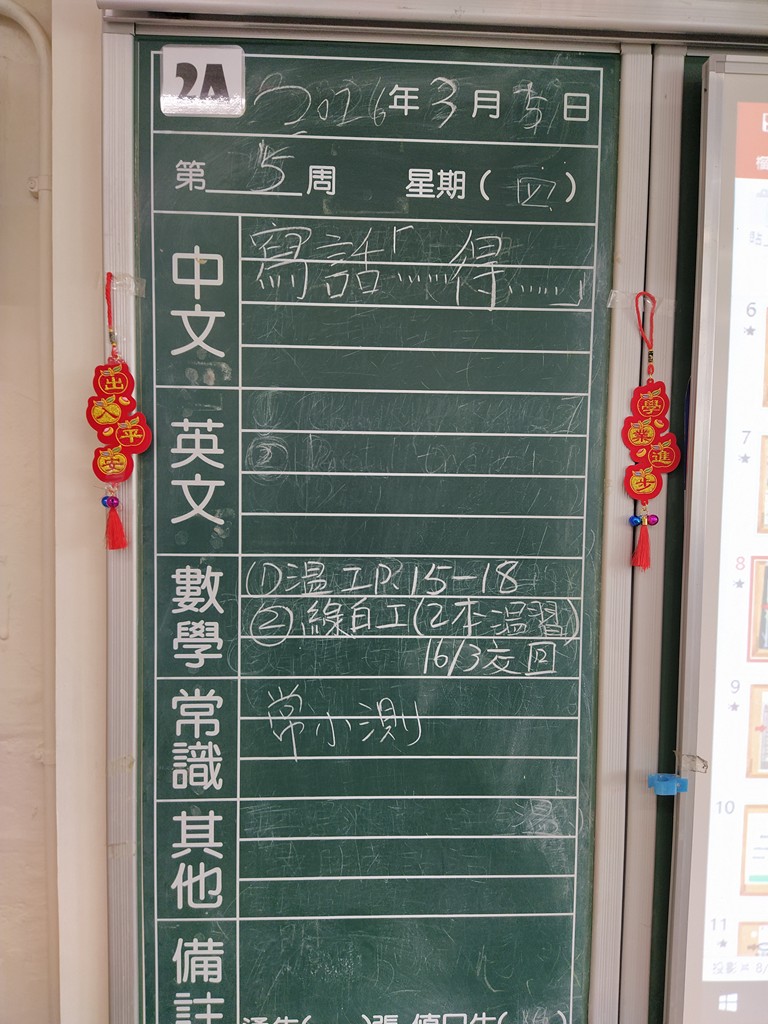 2A
2026年3月5日
第 5 周 星期(四)
中文
寫話「……得……」
英文
數學
①温工P.15-18
②綠自工(2本溫習)
16/3交回
常識
常小測
其他
溫
備註
出入平安
學業進步
6
7
8
9
10
11